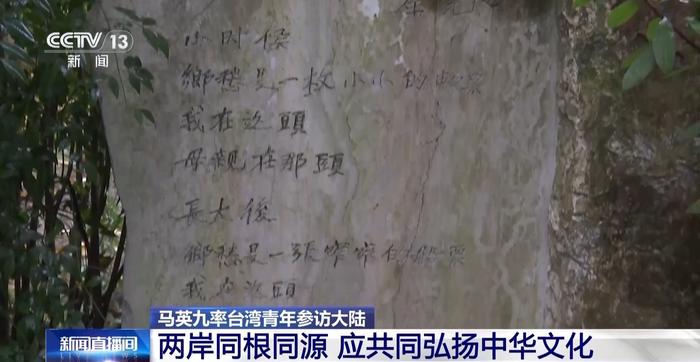 CCTV 13
新闻
小时候
鄉愁是一枚小小的郵票
我在这頭
母親在那頭
長大後
鄉愁是一張窄窄的船票
我在这頭
马英九率台湾青年参访大陆
新闻直播间
两岸同根同源 应共同弘扬中华文化